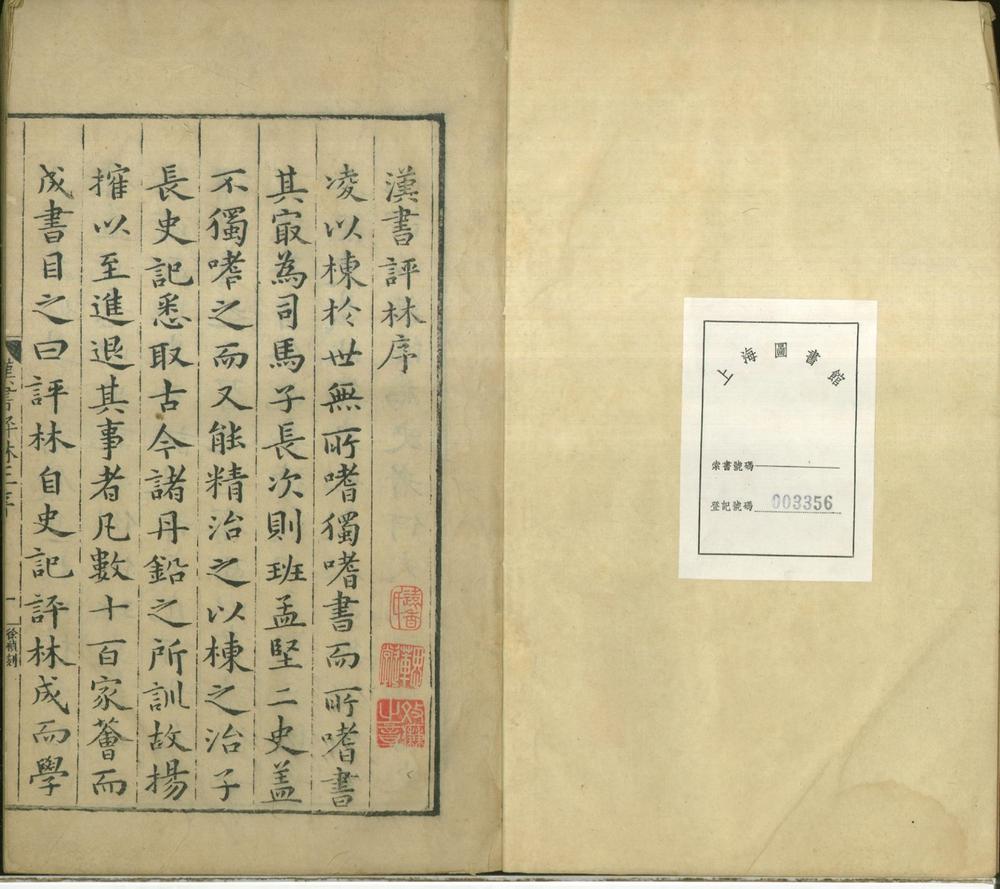 上海圖書館
索書號碼
登記號碼 003356
漢書評林序
凌以棟於世無所嗜獨嗜書而所嗜書
其㝡為司馬子長次則班孟堅二史蓋
不獨嗜之而又能精治之以棟之治子
長史記悉取古今諸丹鉛之所訓故揚
搉以至進退其事者凡數十百家薈而
成書目之曰評林自史記評林成而學
漢書評林王序
一
徐禎刻